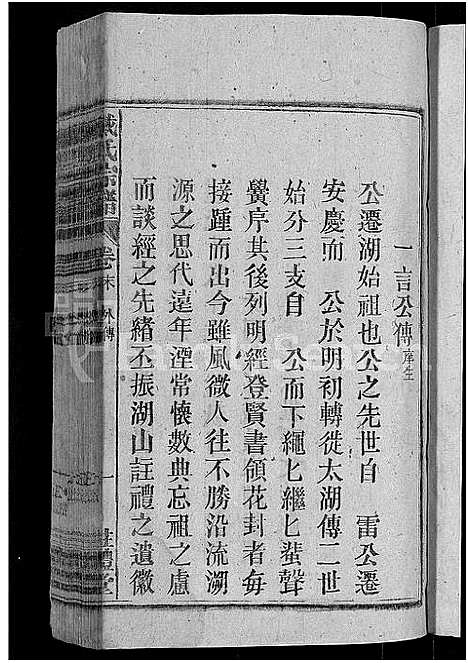 一言公傳庠生
公遷湖始祖也公之先世自 雷公遷
安慶而 公於明初轉徙太湖傳二世
始分三支自 公而下繩匕繼匕蜚聲
黌序其後列明經登賢書領花封者每
接踵而出今雖風微人往不勝沿流溯
源之思代遠年湮常懷數典忘祖之慮
而談經之先緒丕振湖山註禮之遺徽
戴氏宗譜
卷末 外傳
一
註禮堂